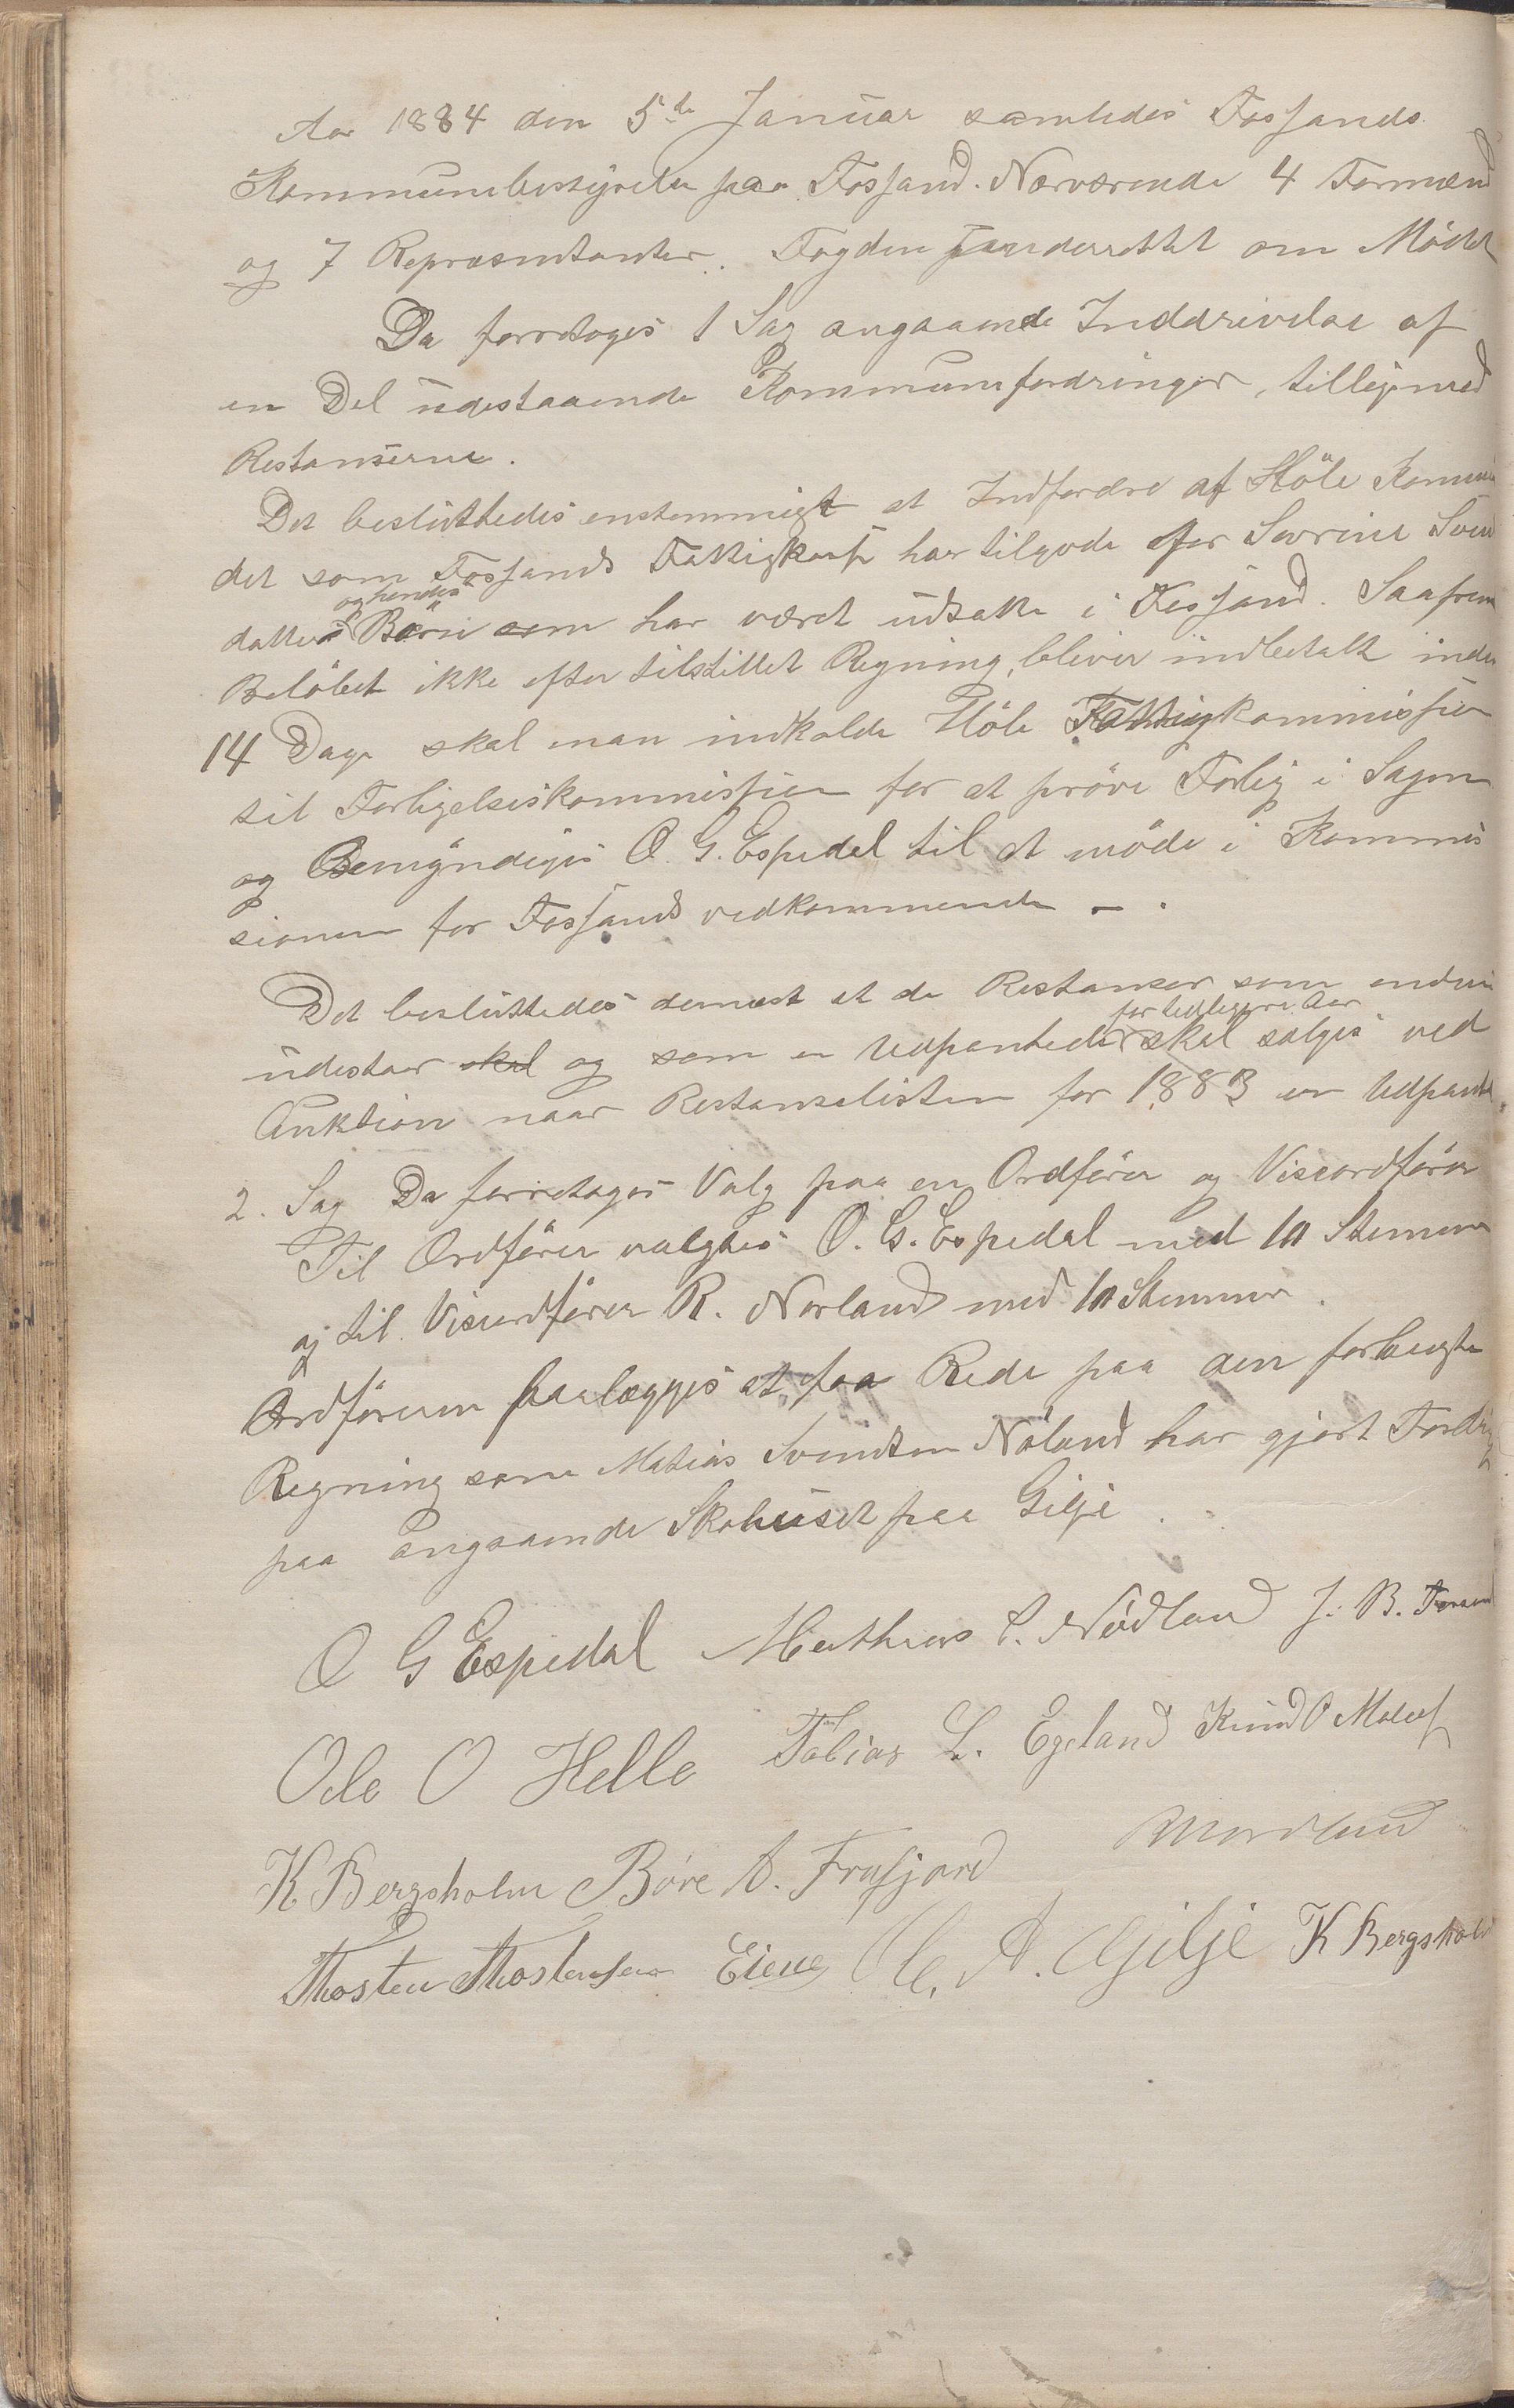 Aar 1884 den 5te Januar samledes Fossands
Kommunebestyrelse paa Fossand. Nærværende 4 Formænd
og 7 Repræsentanter. Fogden underrettet om Mödet
Da forretoges 1 Sag angaaende Inddrivelse af
en Del udestaaende Kommunefordringer, tilligemed
Restanserne.
Det besluttedes enstemmigt at Indfordre af Höle Kommune
det som Fossands Fattigkasse har tilgode for Sevrine Svend
og hendes
datters Børn som har været udsatte i Fossand. Saafremt
Belöbet ikke efter tilstillet Regning, bliver indbetalt inden
14 Dage skal man indkalde Höle Fattigkommission
til Forligelseskommission for at pröve Forlig i Sagen
og Bemyndiges O. G. Espedal til at möde i Kommis
sionen for Fossands vedkommende – .
Det besluttedes dernæst at de Restanser som endnu
for tidligere Aar
udestaar skal og som er Udpantede skal sælges ved
Auktion naar Restanselisten for 1883 er Udpantet
2. Sag Da forretoges Valg paa en Ordförer og Viseordförer
Til Ordförer valgtes O. G. Espedal med 10 Stemmer
og til Viseordförer R. Norland med 10 Stemmer.
Ordföreren paalægges at faa Rede paa den forlangte
Regning som Matias Svendsen Nöland har gjort Fordring
paa angaaende Skohuset paa Gilje.
O G Espedal Mathias S. Nödland J. B.
Ole O Helle Tobias L. Egeland Knud O
K Bergsholm Böre A. Frafjord R Nordland
Thosten Thostensen Eiene Ole. A. Gjilje K Bergsholm